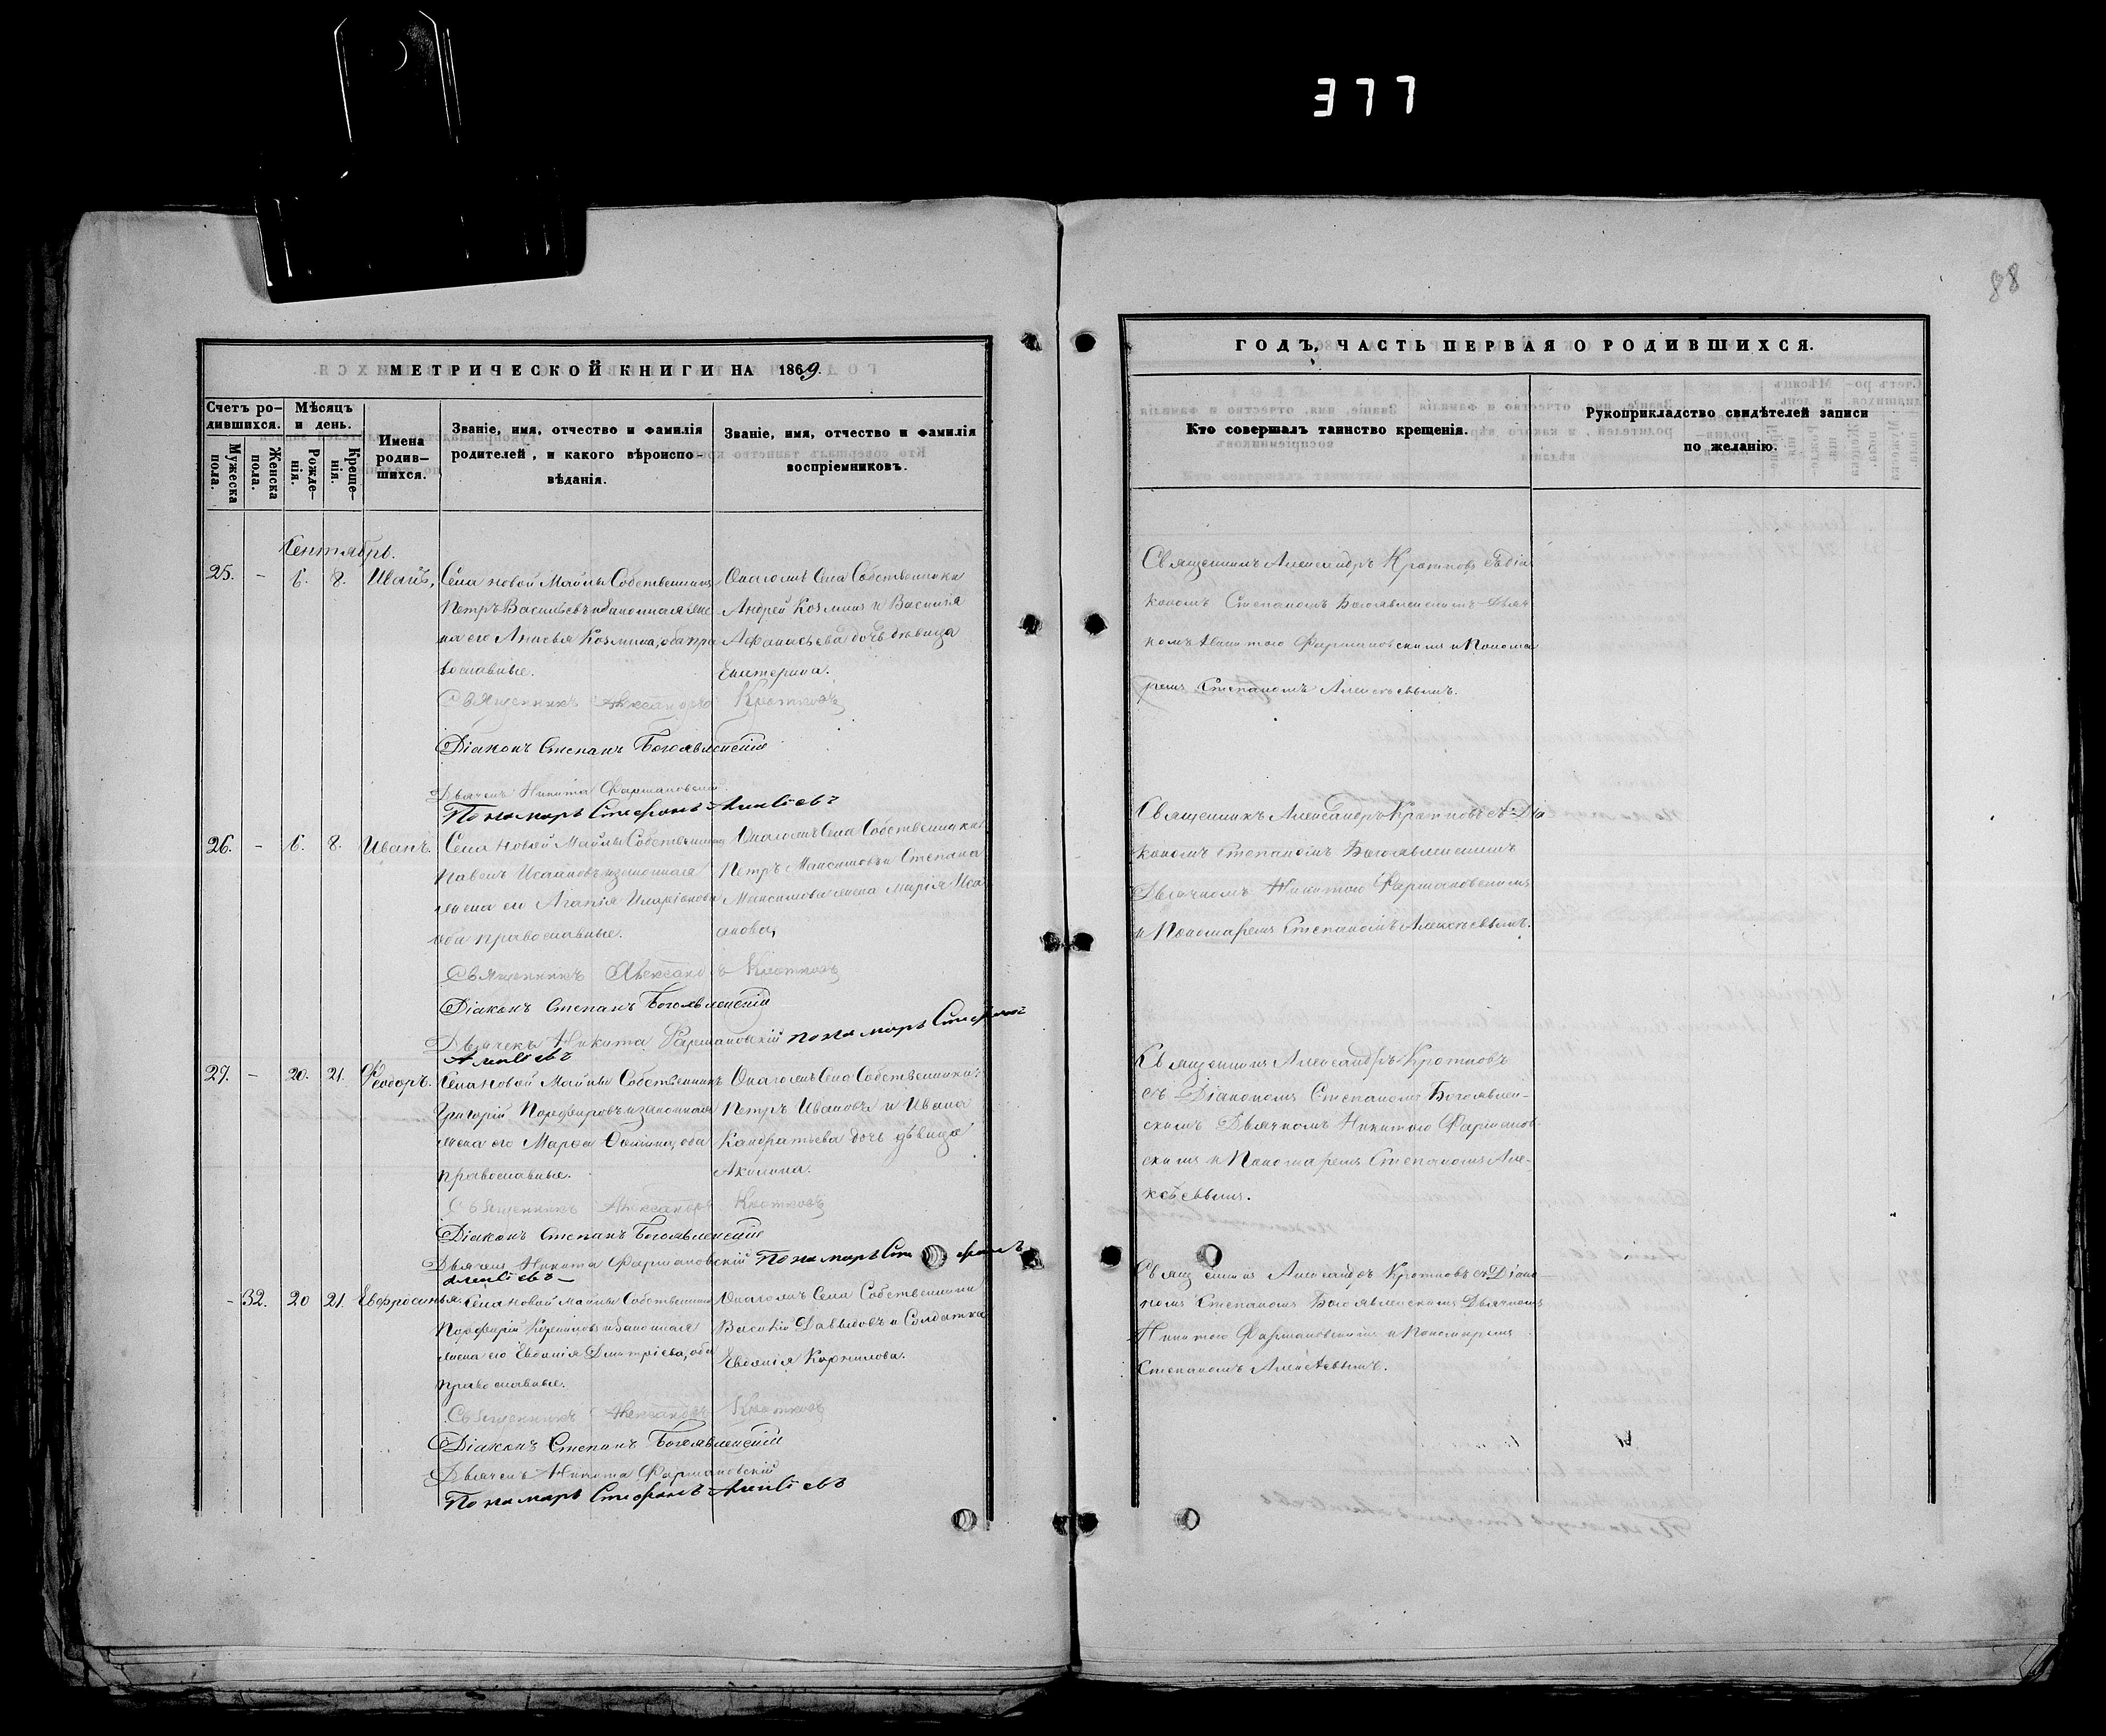 377
88
МЕТРИЧЕСКОЙ КНИГИ НА 1869.
Счетъ ро-
дившихся.
Мужеска
пола.
Женска
пола.
Мѣсяцъ
и день.
Рожде-
нія.
Креще-
нія.
Имена
родив-
шихся.
Званіе, имя, отчество и фамилія
родителей, и какого вѣроиспо-
вѣданія.
Званіе, имя, отчество и фамилія
воспріемниковъ.
Сентябрь.
25. - 6. 8. Иванъ,
Села Новой Майны Собственникъ
Петръ Васильевъ и законная же
на его Анисья Козмина, оба пра
вославные.
Онагожъ Села Собственники
Андрей Козминъ и Василія
Афанасьева дочь дѣвица
Екатерина.
Священникъ Александръ Кротковъ
Діаконъ Степанъ Богоявленскій
Дьячекъ Никита Фармаковскій
Пономарь Стефанъ Алексѣевъ
26. - 6. 8. Иванъ.
Села Новой Майны Собственникъ
Павелъ Исааковъ и законная
жена его Агапія Иларіонова
оба православные.
Онагожъ Села Собственники
Петръ Максимовъ и Степана
Максимова жена Марія Иса
акова,
Священникъ Александръ Кротковъ
Діаконъ Степанъ Богоявленскій
Дьячекъ Никита Фармаковскій Пономарь Стефанъ
Алексѣевъ
27. - 20. 21. Феодоръ.
Села Новой Майны Собственникъ
Григорій Порфировъ и законная
жена его Марѳа Ѳомина, оба
православные.
Онагожъ Села Собственники:
Петръ Ивановъ и Ивана
Кандратьева дочь дѣвица
Акилина.
Священникъ Александръ Кротковъ
Діаконъ Степанъ Богоявленскій
Дьячекъ Никита Фармаковскій Пономарь Стефанъ
Алексѣевъ
- 32. 20 21. Евфросинья.
Села Новой Майны Собственникъ
Порфирій Корниловъ и законная
жена его Евдокія Дмитріева, оба
православные.
Онагожъ Села Собственники
Василій Давыдовъ и Солдатка
Евдокія Карпилова.
Священникъ Александръ Кротковъ
Діаконъ Степанъ Богоявленскій
Дьячекъ Никита Фармаковскій
Пономарь Стефанъ Алексѣевъ
ГОДЪ, ЧАСТЬ ПЕРВАЯ О РОДИВШИХСЯ.
Кто совершалъ таинство крещенія.
Рукоприкладство свидѣтелей записи
по желанію.
Священникъ Александръ Кротковъ съ Діа
кономъ Степаномъ Богоявленскимъ Дьяч
комъ Никитою Фармаковскимъ и Понома
ремъ Степаномъ Алексѣевымъ.
Священникъ Александръ Кротковъ съ Діа
кономъ Степаномъ Богоявленскимъ
Дьячкомъ Никитою Фармаковскимъ
и Пономаремъ Степаномъ Алексѣевымъ.
Священникъ Александръ Кротковъ
съ Діакономъ Степаномъ Богоявлен-
скимъ Дьячкомъ Никитою Фармаков-
скимъ и Пономаремъ Степаномъ Але-
ксѣевымъ.
Священникъ Александръ Кротковъ съ Діако-
номъ Степаномъ Богоявленскимъ Дьячкомъ
Никитою Фармаковскимъ и Пономаремъ
Степаномъ Алексѣевымъ.